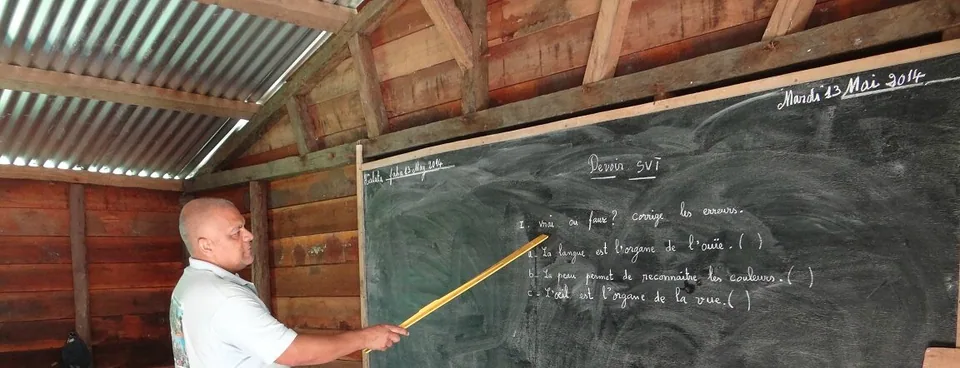 Mardi 13 Mai 2014
Talata 13 May 2014
Devoir SVT
I. vrai ou faux? corrige les erreurs.
a- La langue est l'organe de l'ouïe. ( )
b- La peau permet de reconnaitre les couleurs. ( )
c- L'œil est l'organe de la vue. ( )